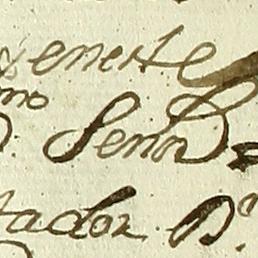 en este
mo Señor
tador Dn.